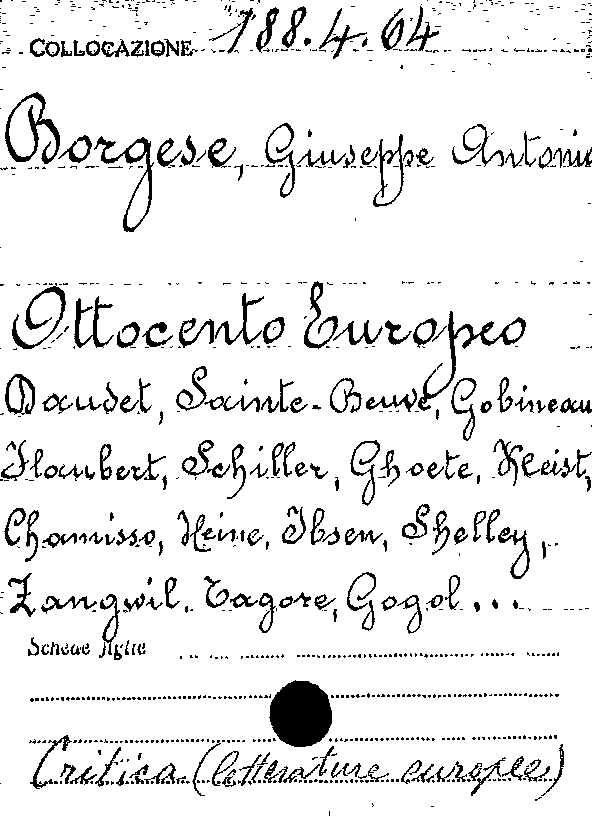 COLLOCAZIONE 188.4.64
Borgese, Giuseppe Antonio
Ottocento Europeo
Daudet, Sainte-Beuve, Gobineau
Flaubert, Schiller, Ghoete, Kleist,
Chamisso, Heine, Ibsen, Shelley,
Zangwil. Tagore, Gogol...
Schede figlie
Critica (letterature europee)